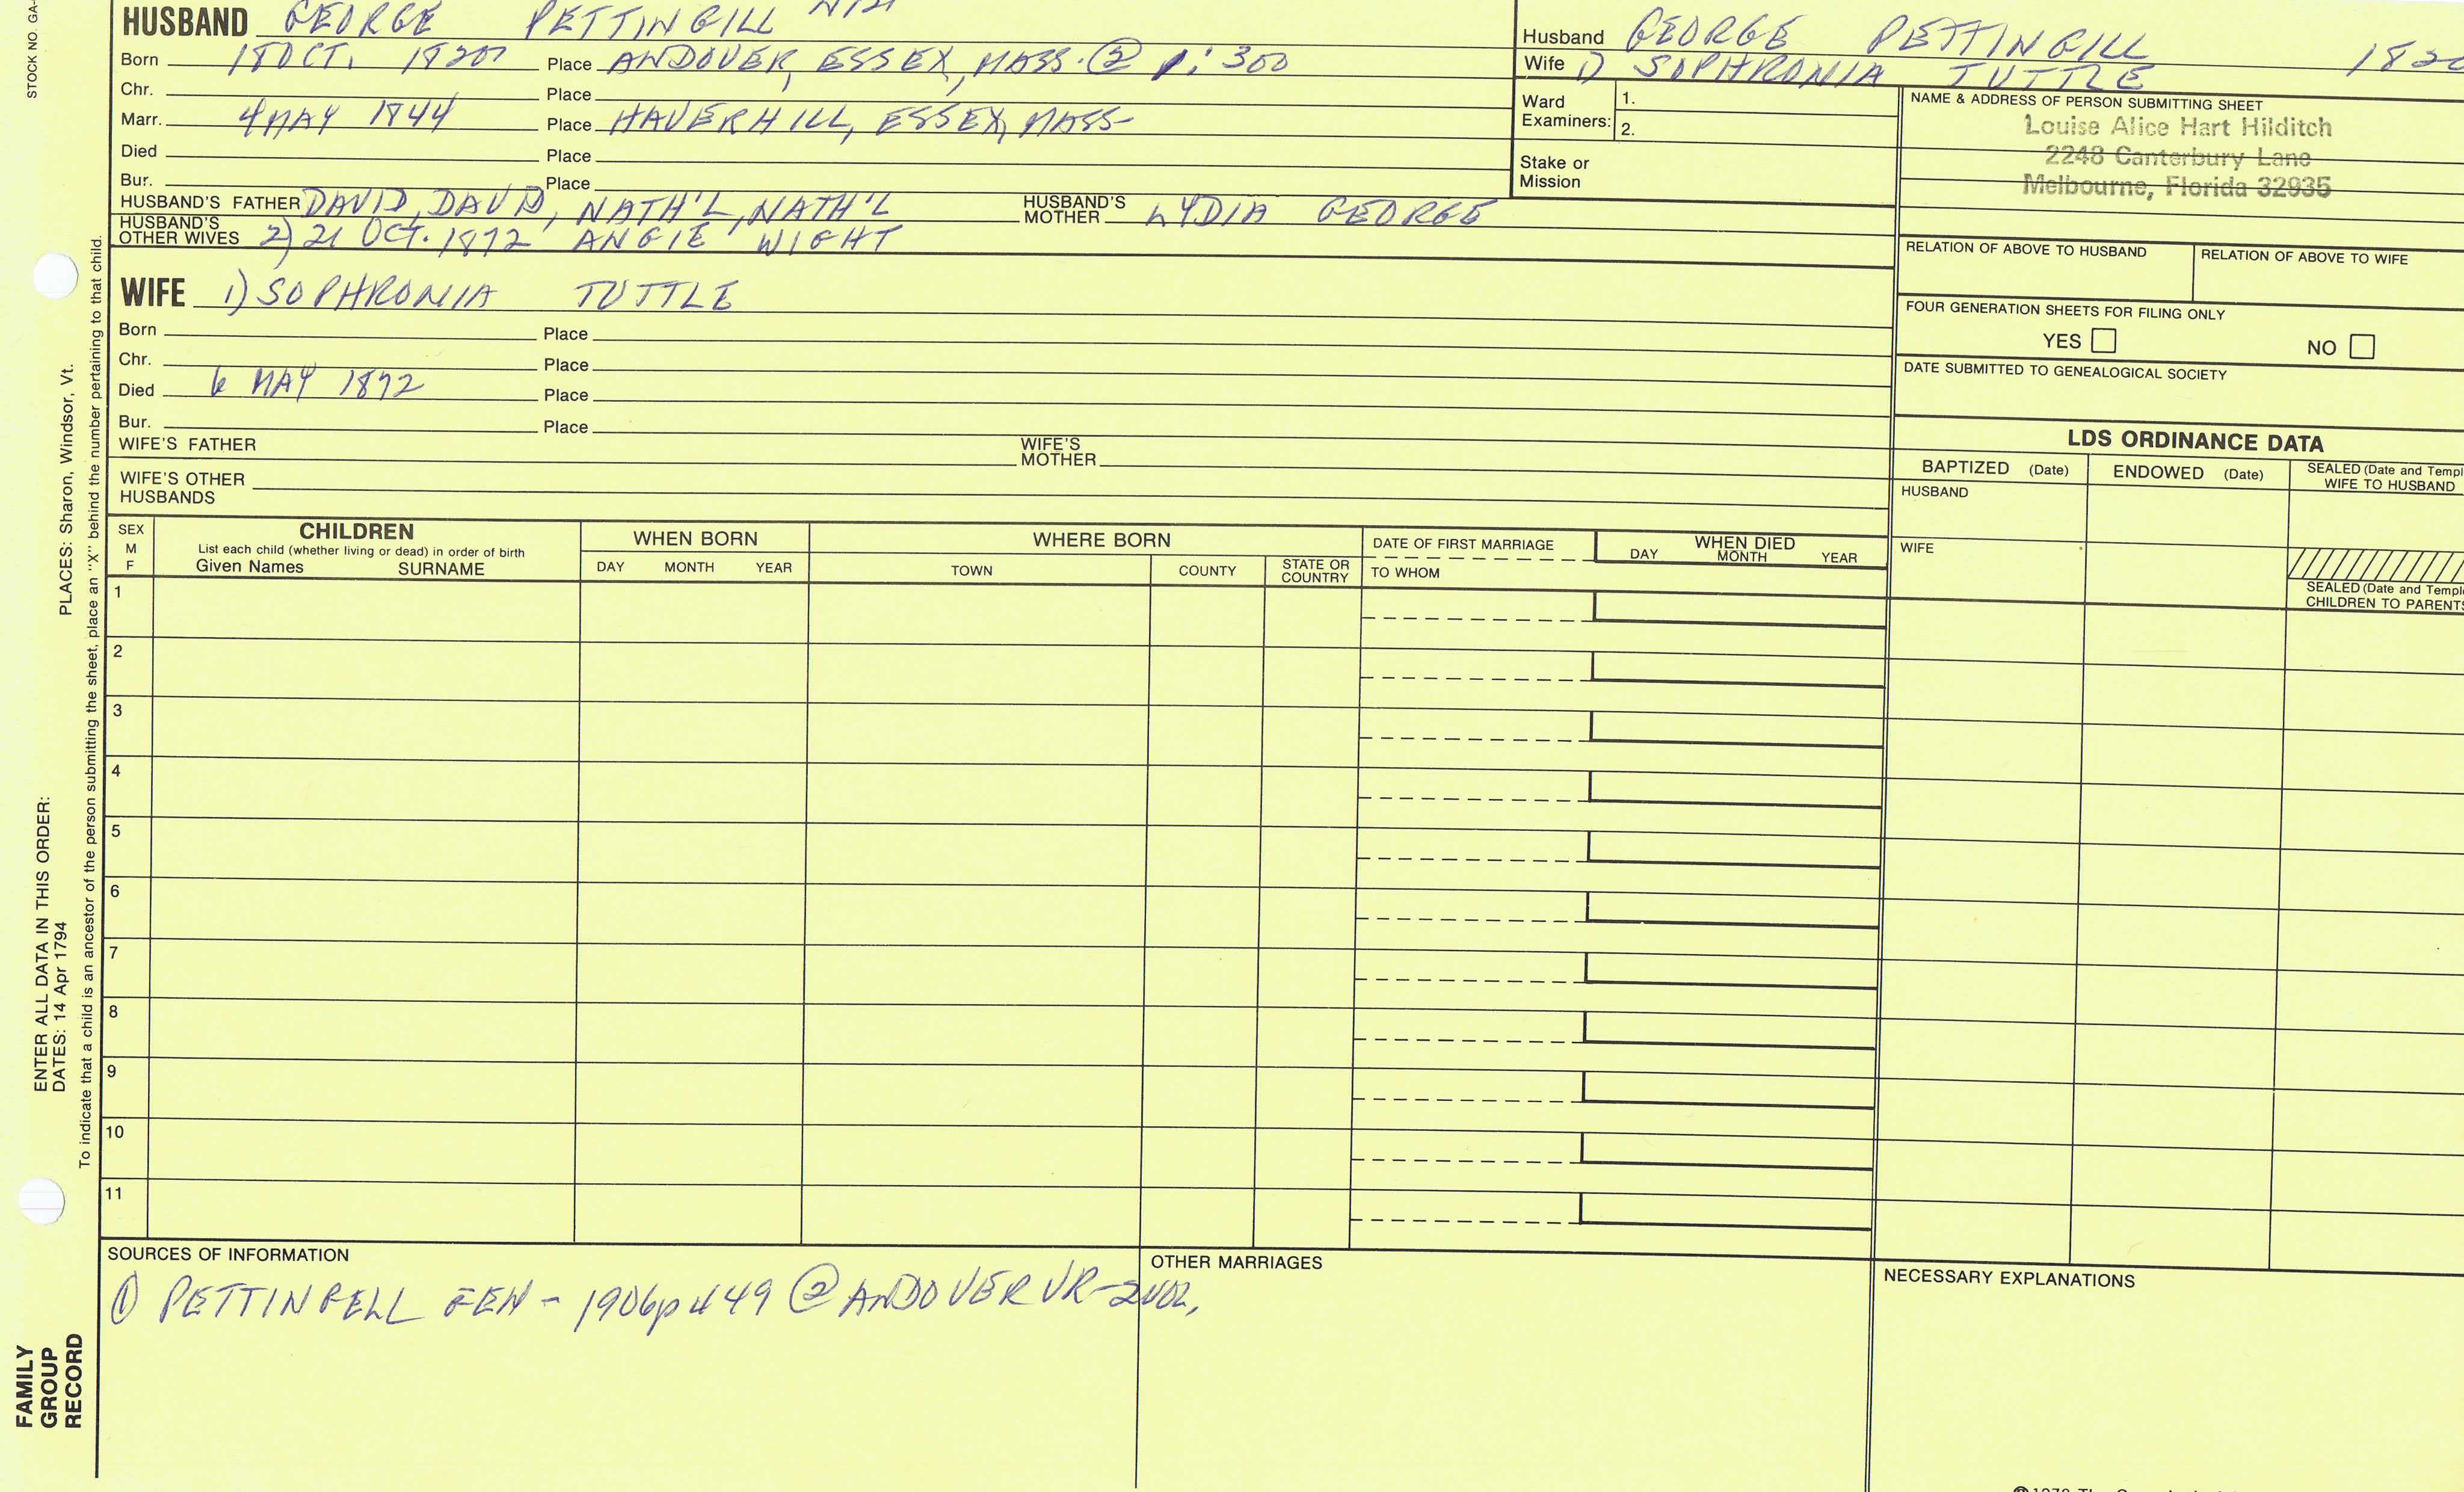 STOCK NO. GA-
HUSBAND GEORGE PETTINGILL
Born 18 OCT. 1820 Place ANDOVER, ESSEX, MASS. ② 1: 300
Chr. Place
Marr. 4 MAY 1844 Place HAVERHILL, ESSEX, MASS
Died Place
Bur. Place
HUSBAND'S FATHER DAVID, DAVID, NATH'L, NATH'L HUSBAND'S MOTHER LYDIA GEORGE
HUSBAND'S OTHER WIVES 2) 21 OCT. 1872 ANGIE WIGHT
WIFE 1) SOPHRONIA TUTTLE
Born Place
Chr. Place
Died 6 MAY 1872 Place
Bur. Place
WIFE'S FATHER WIFE'S MOTHER
WIFE'S OTHER HUSBANDS
Husband GEORGE PETTINGILL
Wife 1) SOPHRONIA TUTTLE
Ward Examiners: 1.
2.
Stake or Mission
NAME & ADDRESS OF PERSON SUBMITTING SHEET
Louise Alice Hart Hilditch
2248 Canterbury Lane
Melbourne, Florida 32935
RELATION OF ABOVE TO HUSBAND RELATION OF ABOVE TO WIFE
FOUR GENERATION SHEETS FOR FILING ONLY
YES NO
DATE SUBMITTED TO GENEALOGICAL SOCIETY
LDS ORDINANCE DATA
BAPTIZED (Date) ENDOWED (Date) SEALED (Date and Templ
WIFE TO HUSBAND
HUSBAND
WIFE
SEALED (Date and Templ
CHILDREN TO PARENTS
SEX
M
F
CHILDREN
List each child (whether living or dead) in order of birth
Given Names SURNAME
WHEN BORN
DAY MONTH YEAR
WHERE BORN
TOWN COUNTY STATE OR COUNTRY
DATE OF FIRST MARRIAGE
TO WHOM
WHEN DIED
DAY MONTH YEAR
1
2
3
4
5
6
7
8
9
10
11
SOURCES OF INFORMATION
① PETTINGELL GEN - 1906 p 449 ② ANDOVER VR - 2 VOL,
OTHER MARRIAGES
NECESSARY EXPLANATIONS
PLACES: Sharon, Windsor, Vt.
ENTER ALL DATA IN THIS ORDER:
DATES: 14 Apr 1794
To indicate that a child is an ancestor of the person submitting the sheet, place an "X" behind the number pertaining to that child.
FAMILY
GROUP
RECORD